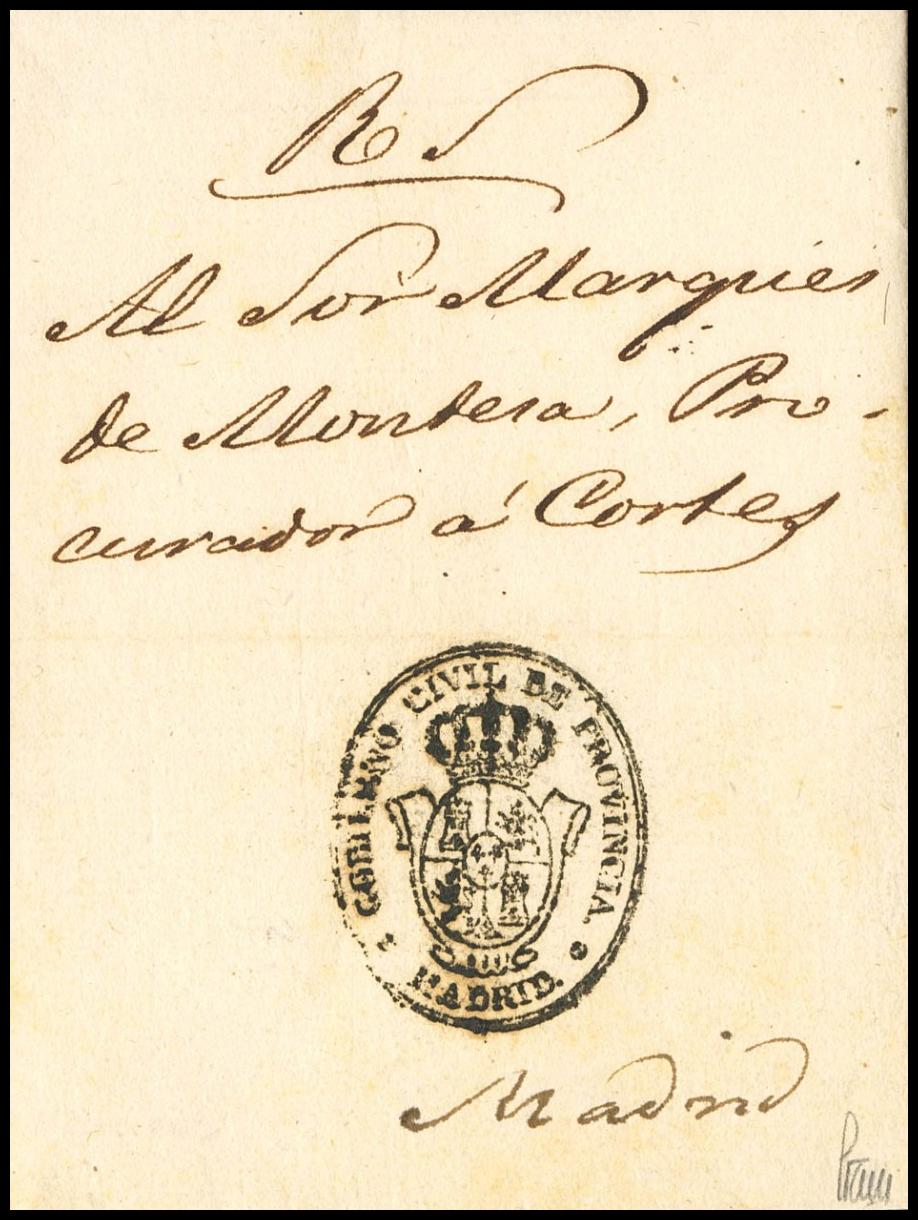 R S
Al Sor Marques
de Montesa, Pro-
curador á Cortes
GOBIERNO CIVIL DE PROVINCIA.
MADRID.
Madrid